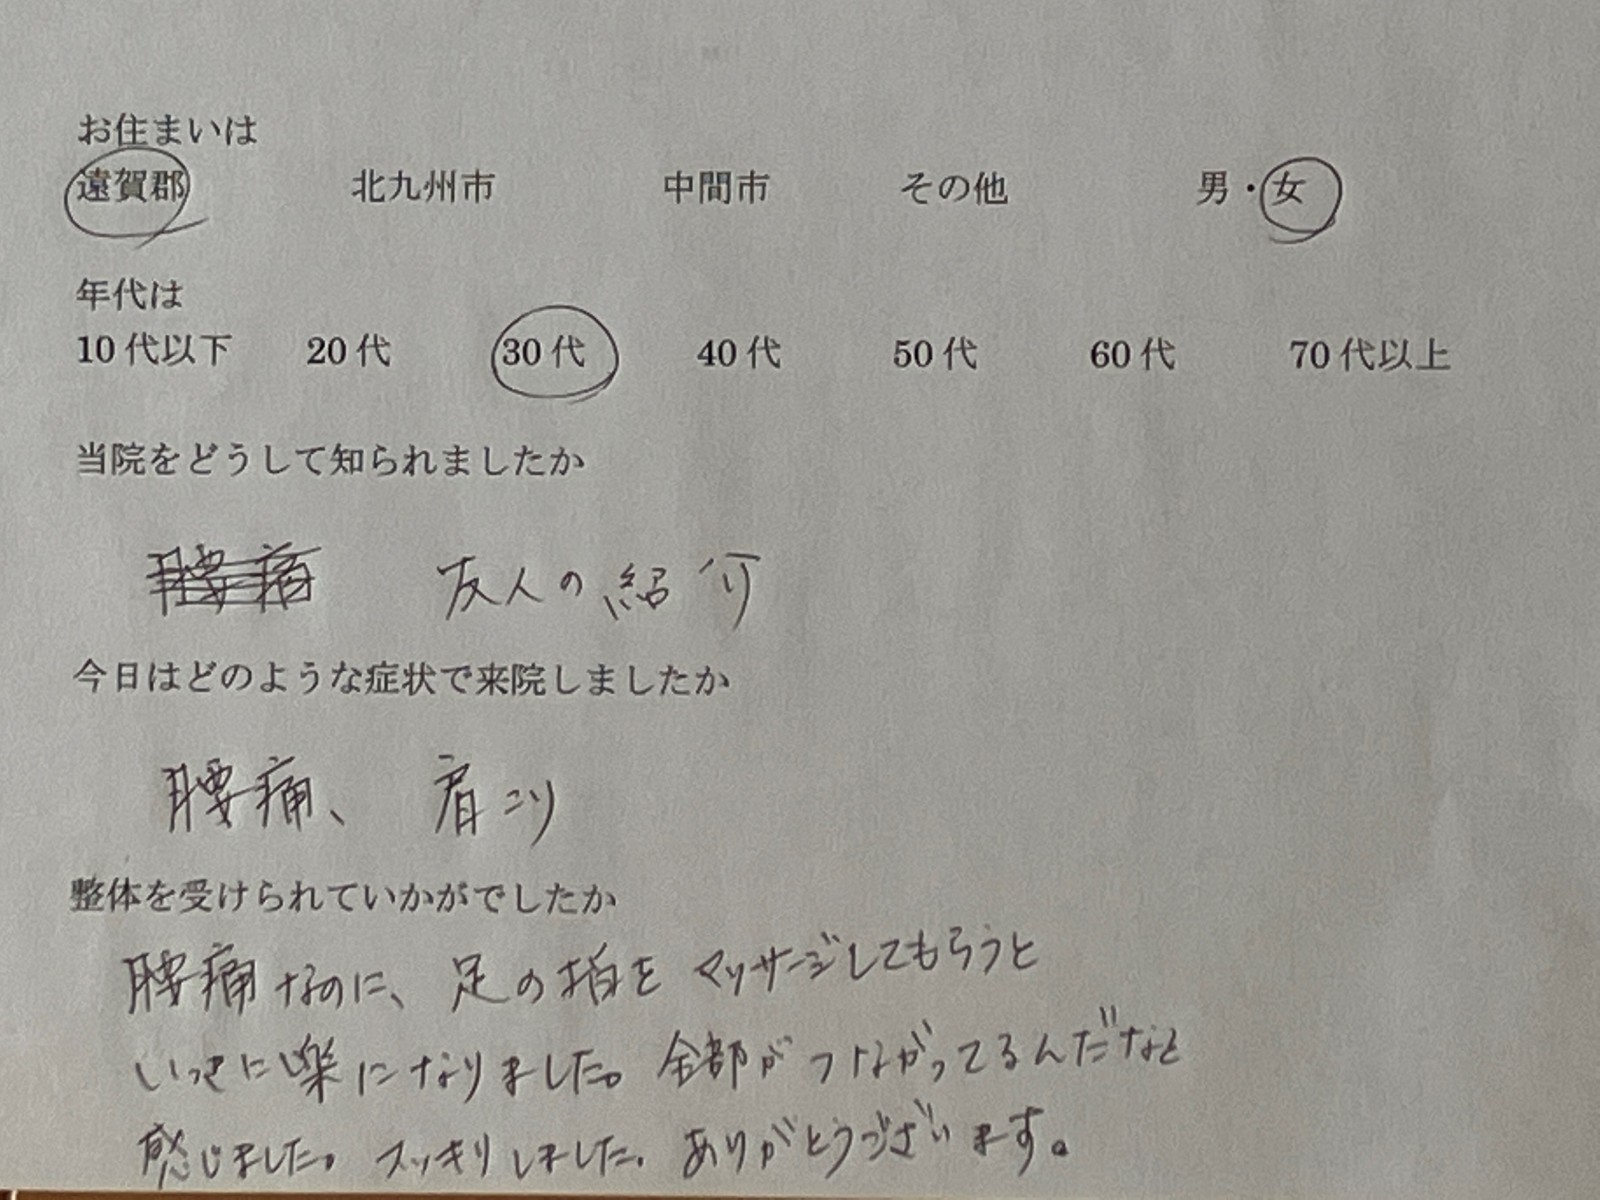 お住まいは
遠賀郡 北九州市 中間市 その他 男・女
年代は
10代以下 20代 30代 40代 50代 60代 70代以上
当院をどうして知られましたか
腰痛 友人の紹介
今日はどのような症状で来院しましたか
腰痛、肩こり
整体を受けられていかがでしたか
腰痛なのに、足の指をマッサージしてもらうと
いっきに楽になりました。全部がつながってるんだなと
感じました。スッキリしました。ありがとうございます。